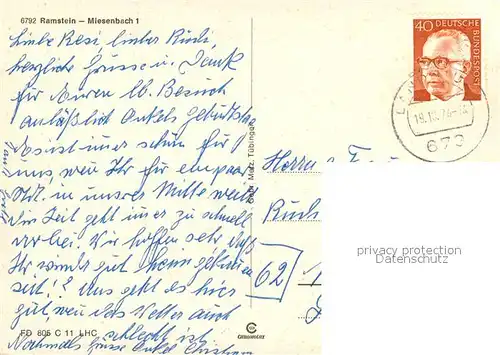 6792 Ramstein – Miesenbach 1
Liebe Resi, lieber Rudi,
herzliche Grüsse u. Dank
für Euren lb. Besuch
anläßlich Onkels Geburtstag
Es ist immer schön für
uns, wenn Ihr für ein paar
Std. in unsrer Mitte weilt
Die Zeit geht immer zu schnell
vorbei. Wir hoffen sehr, daß
Ihr wieder gut heim gefahren
seit! Uns geht es hier
gut, wenn das Wetter auch
schlecht ist
Nochmals Grüsse Onkel
FD 805 C 11 LHC
Cramers
Gebr. Metz, Tübingen
40 DEUTSCHE BUNDESPOST
18.10.74
679
Herrn u.
Rudi
62
privacy protection
Datenschutz